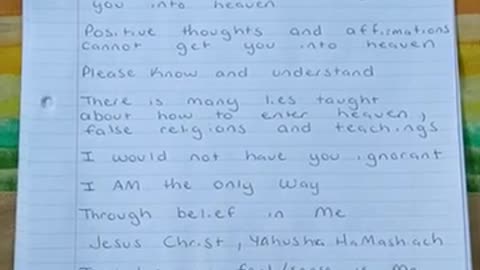 you into heaven
Positive thoughts and affirmations
cannot get you into heaven
Please know and understand
There is many lies taught
about how to enter heaven,
false religions and teachings
I would not have you ignorant
I AM the only way
Through belief in Me
Jesus Christ, Yahusha HaMashiach